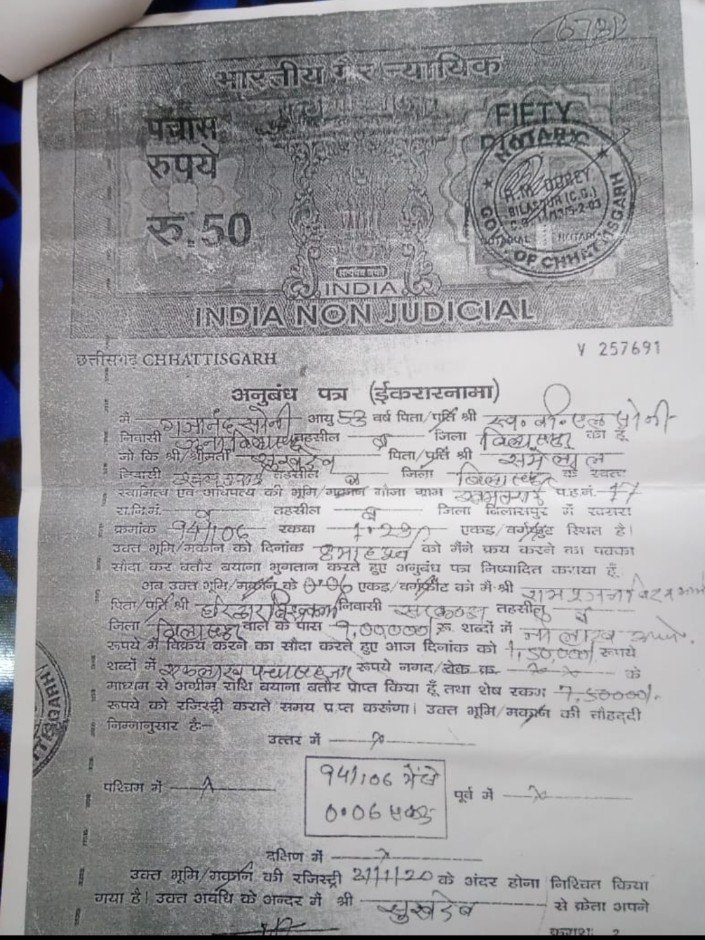 6791
भारतीय गैर न्यायिक
पचास
रुपये
रु.50
FIFTY
NOTARY
BILASPUR (C.G.)
GOVT. OF CHHATTISGARH
सत्यमेव जयते
INDIA
INDIA NON JUDICIAL
छत्तीसगढ़ CHHATTISGARH
V 257691
अनुबंध पत्र (ईकरारनामा)
मैं गजानंद सोनी आयु 53 वर्ष पिता/पति श्री स्व. बी. एल सोनी
निवासी बिलासपुर तहसील व जिला बिलासपुर का हूँ
जो कि श्री/श्रीमती सुखदेव पिता/पति श्री रामेलाल
निवासी तहसील व जिला बिलासपुर के स्वत्व
स्वामित्व एवं आधिपत्य की भूमि/मकान मौजा ग्राम प.ह.नं. 17
रा.नि.मं. व तहसील व जिला बिलासपुर में खसरा
क्रमांक 94/106 रकबा 1.23 एकड/वर्गफुट स्थित है।
उक्त भूमि/मकान को दिनांक 8 माह पूर्व को मैंने क्रय करने का पक्का
सौदा कर बतौर बयाना भुगतान करते हुए अनुबंध पत्र निष्पादित कराया हूँ
अब उक्त भूमि/मकान के 0.06 एकड/वर्गफीट को मैं श्री
पिता/पति श्री हरिद्वार विश्वकर्मा निवासी सरकण्डा तहसील व
जिला बिलासपुर वाले के पास 9,00,000/ रू शब्दों में नौ लाख रूपये
रूपये में विक्रय करने का सौदा करते हुए आज दिनांक को 1,50,000/ रूपये
शब्दों में एक लाख पचास हजार रूपये नगद/चेक क्र. के
माध्यम से अग्रीम राशि बयाना बतौर प्राप्त किया हूँ, तथा शेष रकम 7,50000/-
रूपये को रजिस्ट्री कराते समय प्राप्त करूंगा। उक्त भूमि/मकान की चौहददी
निम्नानुसार है:-
उत्तर में
पश्चिम में
94/106 में से
0.06 एकड
पूर्व में
दक्षिण में
उक्त भूमि/मकान की रजिस्ट्री 31/1/20 के अंदर होना निश्चित किया
गया है। उक्त अवधि के अन्दर में श्री सुखदेव से क्रेता अपने
क्रमश: 2